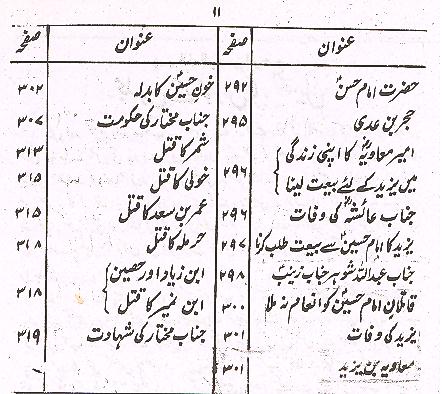 ۱۱
عنوان صفحہ
حضرت امام حسنؑ ۲۹۲
حجر بن عدی ۲۹۵
امیر معاویہؓ کا اپنی زندگی
میں یزید کے لئے بیعت لینا ۲۹۶
جناب عائشہؓ کی وفات ۲۹۶
یزید کا امام حسینؑ سے بیعت طلب کرنا ۲۹۷
جناب عبداللہ شوہر جناب زینبؑ ۲۹۸
قاتلان امام حسینؑ کو انعام نہ ملا ۳۰۰
یزید کی وفات ۳۰۱
معاویہ بن یزید ۳۰۱
عنوان صفحہ
خون حسینؑ کا بدلہ ۳۰۲
جناب مختار کی حکومت ۳۰۷
شمر کا قتل ۳۱۳
خولی کا قتل ۳۱۵
عمر بن سعد کا قتل ۳۱۵
حرملہ کا قتل ۳۱۸
ابن زیاد اور حصین
ابن نمیر کا قتل ۳۱۸
جناب مختار کی شہادت ۳۱۹